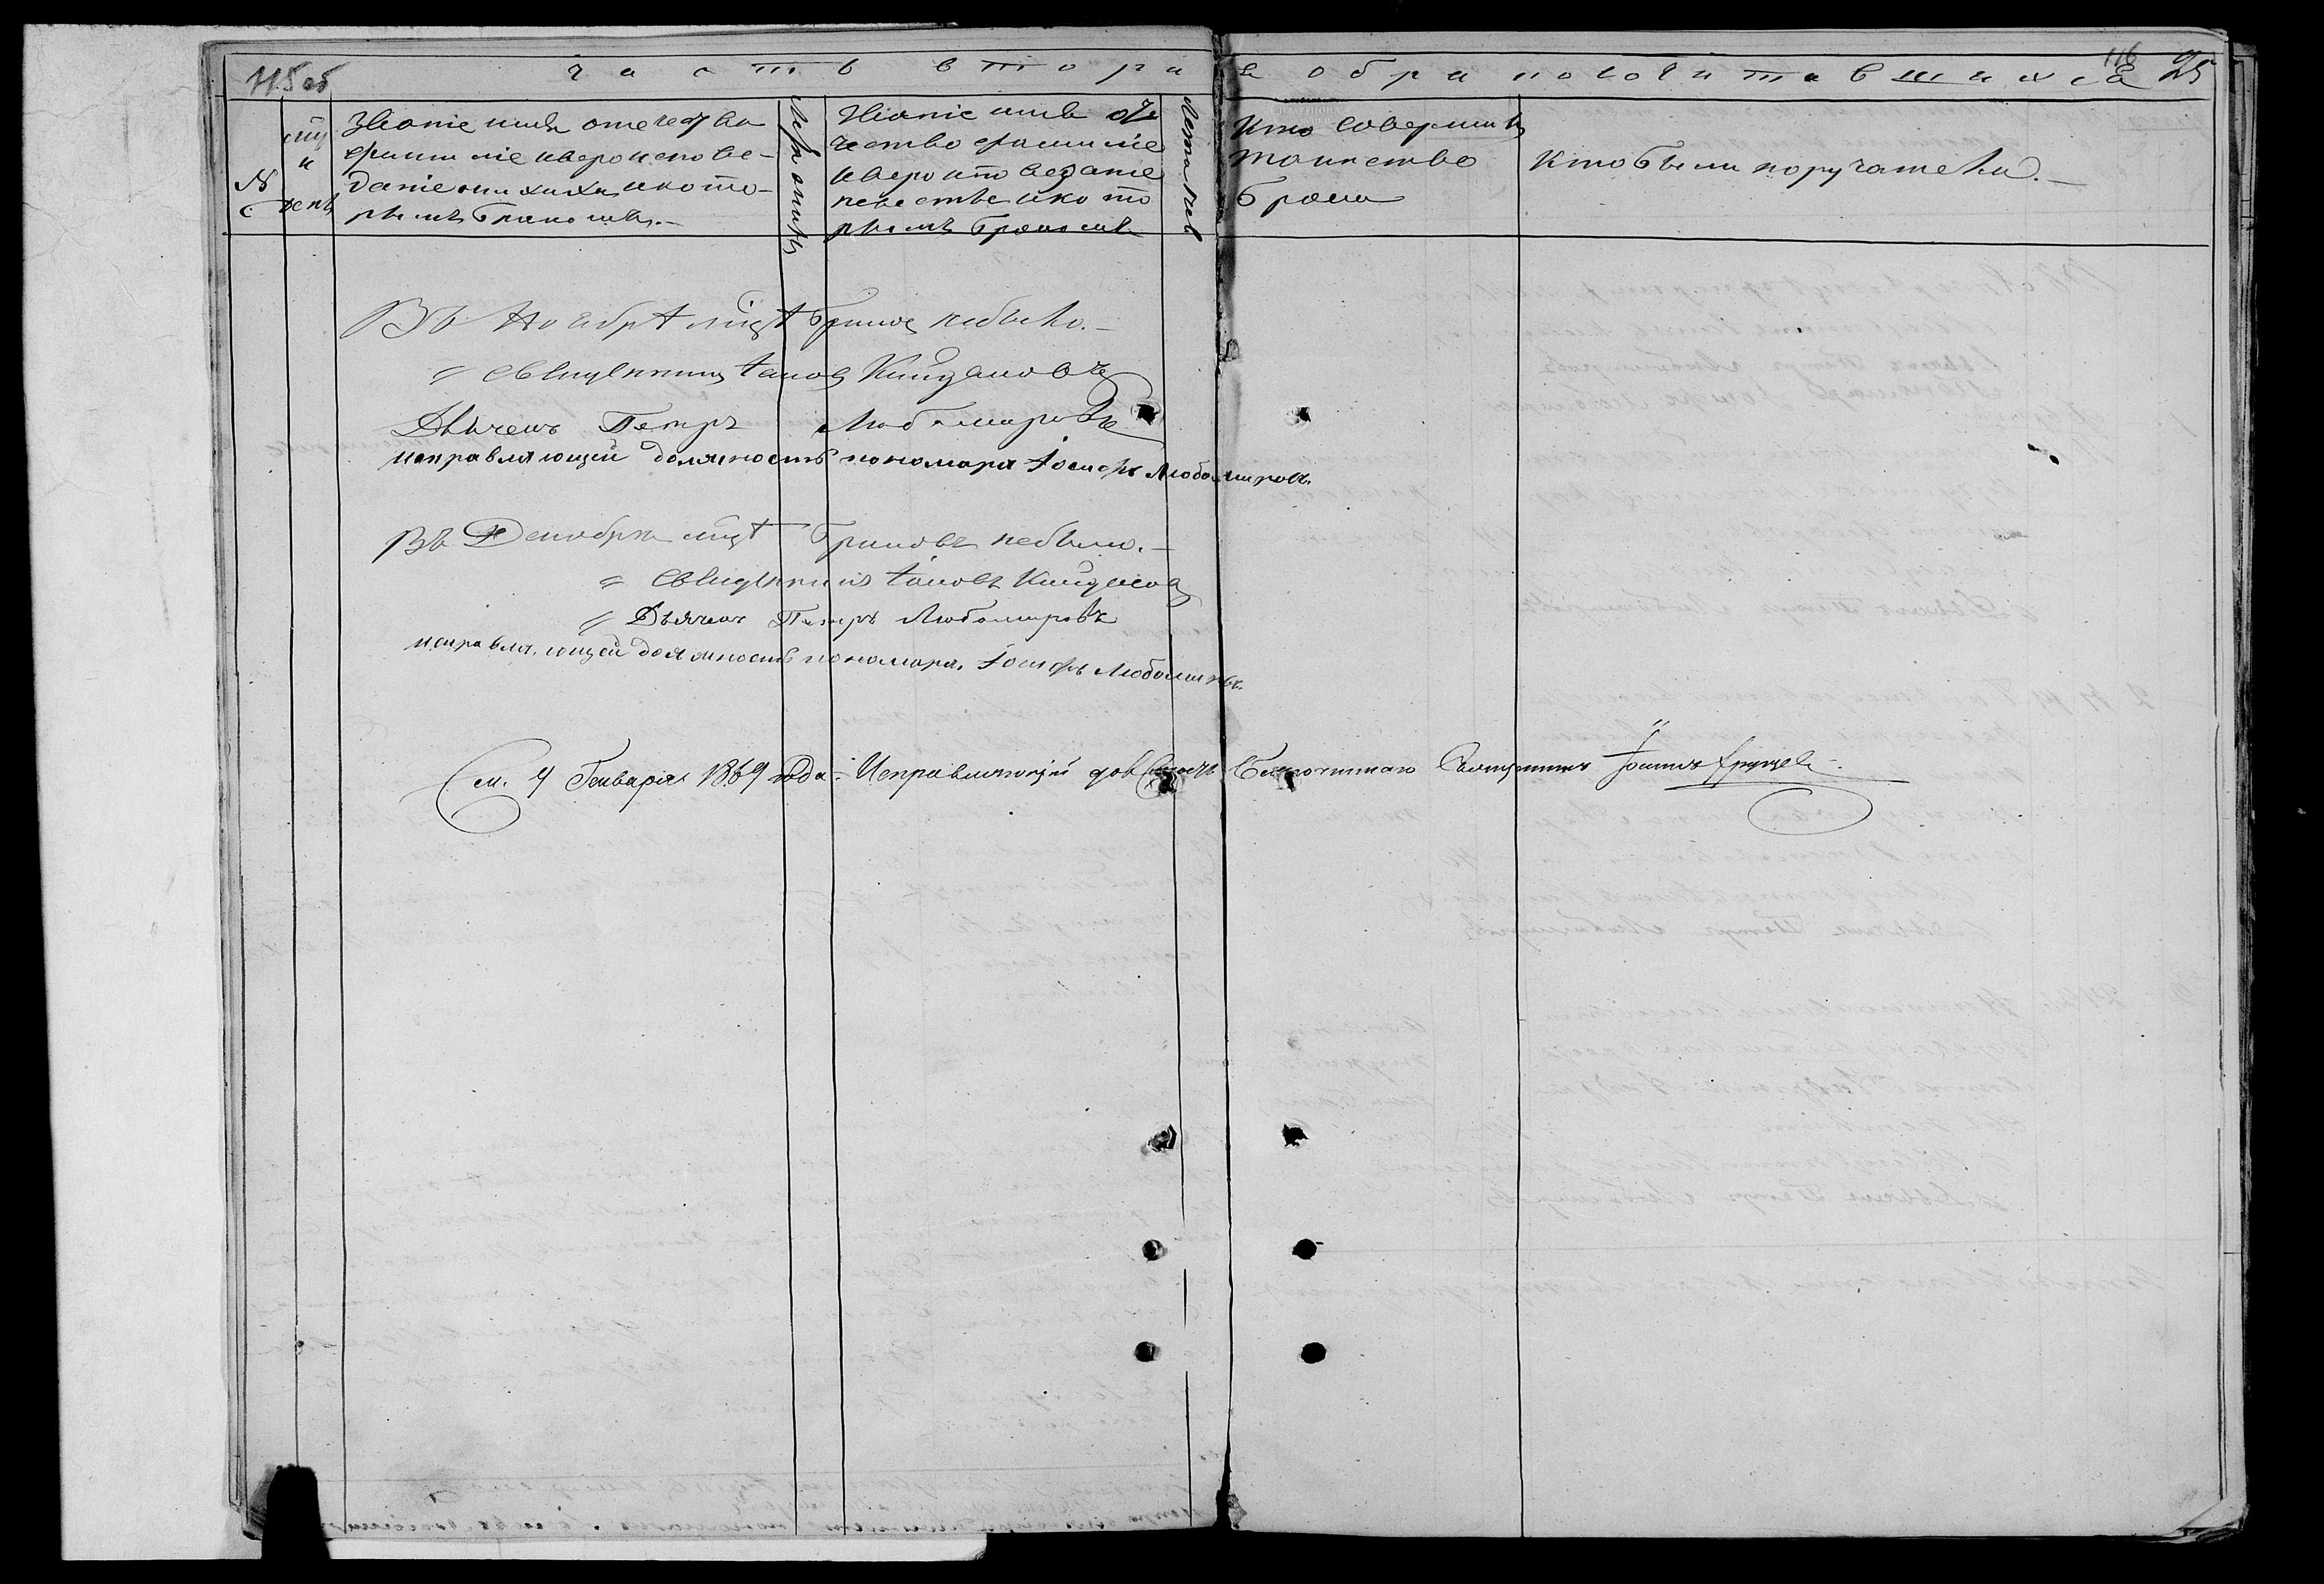 115 об
116 25
часть втора я о бракосочитавшихся
№
мцъ и день
Званіе имя отечество
фамиліе и вероиспове-
даніе жениха и кото-
рымъ бракомъ.-
Лета жениха
Званіе имя оте
чество фамиліе
и вероисповедание
невесты и кото
рымъ бракомъ
Лета невес
Кто совершилъ
таинство
брака
Кто были поручатели.-
Въ Ноябрѣ мцѣ браковъ небыло.-
Священникъ Іаковъ
Дьячекъ Петръ Любомировъ
исправляющій должность пономаря Іосифъ Любомировъ.
Въ Декабрѣ мцѣ браковъ небыло.-
Священникъ Іаковъ
Дьячекъ Петръ Любомировъ
исправляющей должность пономаря. Іосифъ Любомировъ.
См. 9 Генваря 1869 года. Исправляющій Благочиннаго Священникъ Іоаннъ